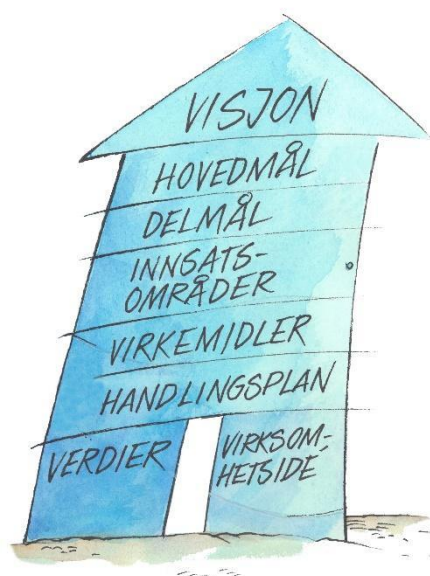 VISJON
HOVEDMÅL
DELMÅL
INNGATS-
OMRÅDER
VIRKEMIDLER
HANDLINGSPLAN
VERDIER
VIRKSOM-
HETSIDE